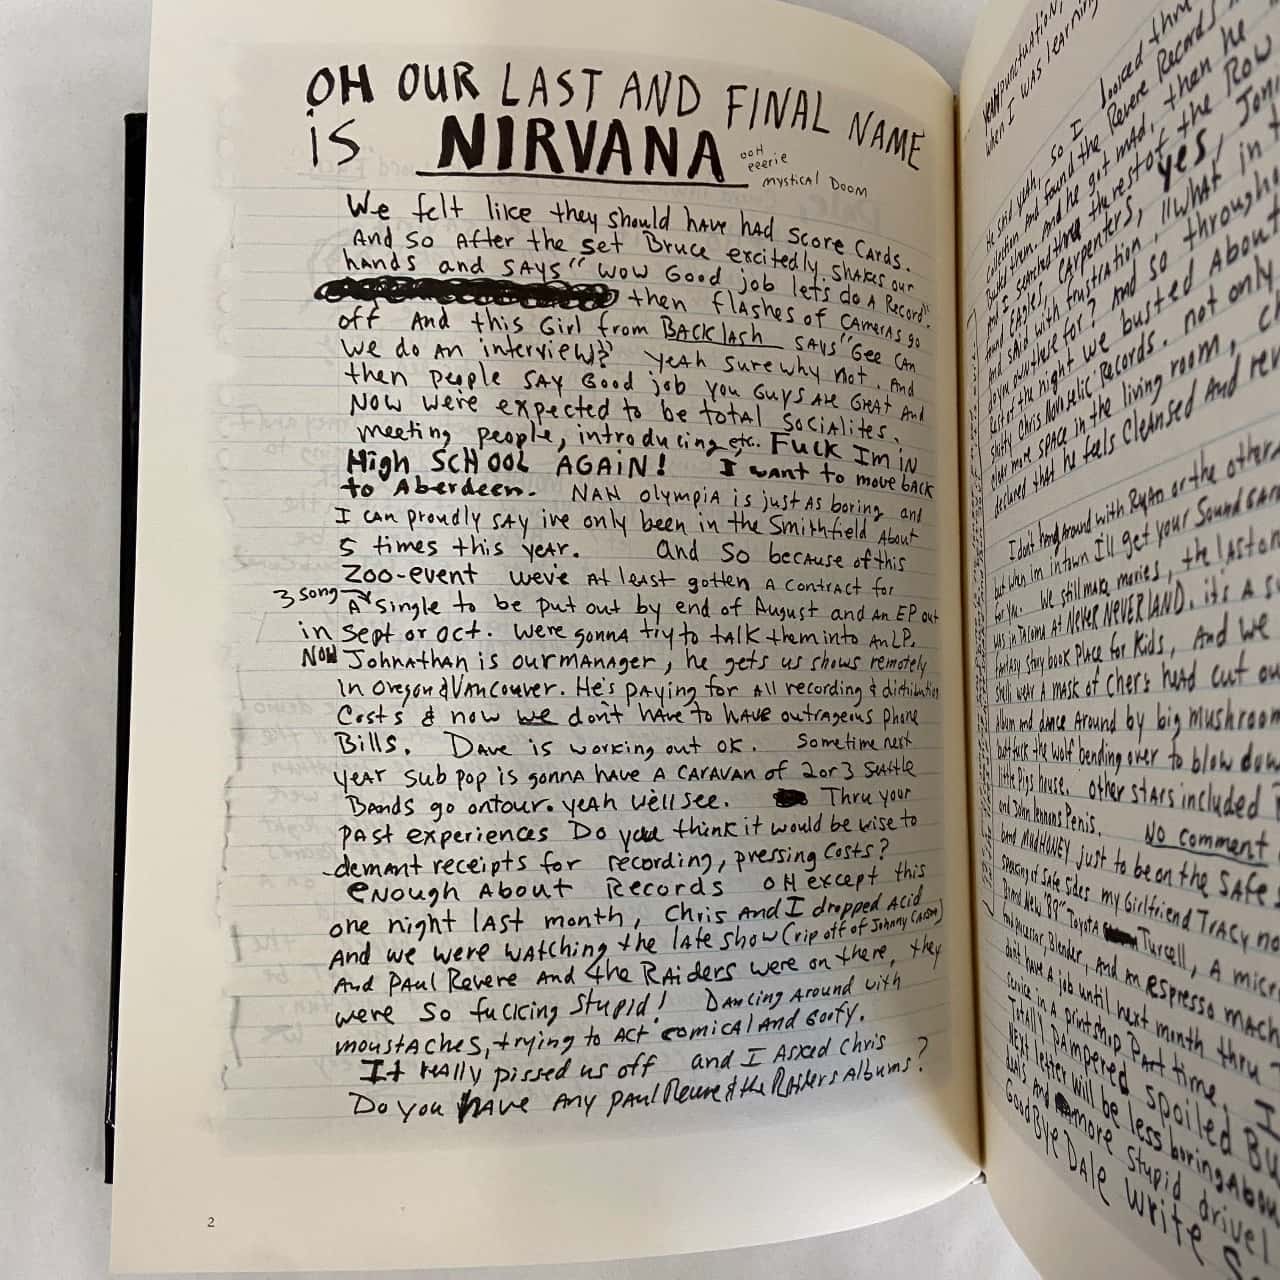 OH OUR LAST AND FINAL NAME
is NIRVANA
ooH
eeerie
mystical DOOM
We felt like they should HAVE HAD Score CArds.
And so After the set Bruce excitedly shakes our
hands and SAYS "WOW Good job let's do A Record".
then flAshes of CAMERAS go
off And this Girl from BACKLASH SAYS "Gee CAN
We do AN interview?" yeah sure why not. And
then people SAY Good job you Guys ARE GREAT And
Now were expected to be total Socialites.
meeting people, introducing etc. Fuck Im in
High SCHOOL AGAIN! I want to move back
to Aberdeen. NAH olympia is just AS boring and
I CAN proudly SAY ive only been in the Smithfield About
5 times this year. and So because of this
Zoo-event weve At least gotten A contract for
3 song
A Single to be put out by end of August and An EP out
in Sept or oct. Were gonna try to talk them into An LP.
Now Johnathan is our manager, he gets us shows remotely
in Oregon & Vancouver. He's paying for All recording & distribution
Costs & now we don't have to have outrageous phone
Bills. Dave is working out ok. Sometime next
year sub pop is gonna have A CARAVAN of 2 or 3 Seattle
Bands go on tour. yeah we'll see. Thru your
past experiences Do you think it would be wise to
demant receipts for recording, pressing costs?
enough About Records oH except this
one night last month, Chris And I dropped Acid
And we were watching the late show (rip off of Johnny Carson)
And Paul Revere And the RAiders were on there, they
were So fucking Stupid! Dancing Around with
moustaches, trying to Act comical And Goofy.
It really pissed us off and I Asked Chris
Do you have Any Paul Revere & the Raiders Albums?
2
punctuation,
when I was learning
He said yeah, so I looked thru
Collection and found the Revere Records
them. And he got mad, then he
And I searched thru the rest of the Row
found EAgles, CArpenters, yes, Joni
And said with frustration, "What in th
do you own these for? And so througho
Rest of the night we busted About
shitty Chris Novoselic Records. not only
clear more space in the living room,
declared that he feels cleansed And rev
I don't hang around with RyAn or the other
but when im in town I'll get your Soundgar
for you. We still make movies, the last on
was in Tacoma At NEVER NEVER LAND. it's A s
fantasy story book place for Kids, And we
Shelli wear A mask of Chers head cut ou
album and dance Around by big mushroom
but fuck the wolf bending over to blow dow
little pigs house. other stars included
and John Lennons Penis. No comment
band MUDHONEY just to be on the SAfe
speaking of SAfe sides my Girlfriend TrAcy no
Brand New '89" Toyota Turcell, A micr
food processor, Blender, And An espresso mach
don't have A job until next month thru
service in A printshop part time. I
Totally pAmpered spoiled Bu
Next letter will be less boring About
dals And more stupid drivel
GoodBye DAle write S